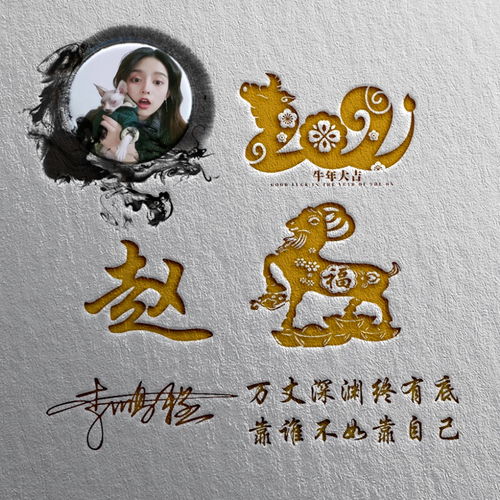 2021
牛年大吉
GOOD LUCK IN THE YEAR OF THE OX
赵
福
万丈深渊终有底
靠谁不如靠自己